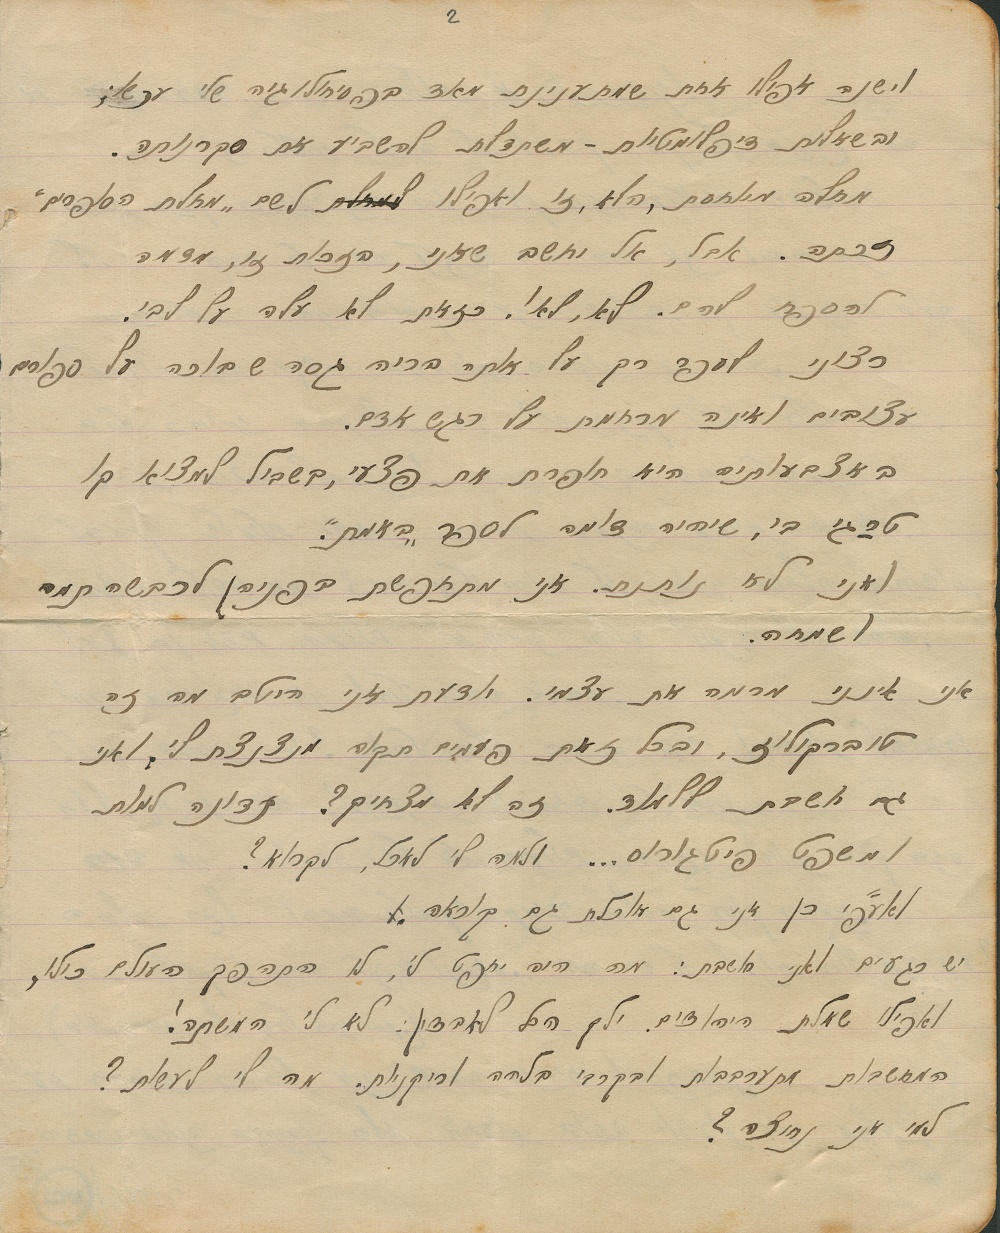 2
וישנה אפילו אחת שמתענינת מאד בפסיכולוגיה שלי
ובשאלות דיפלומטיות – משתדלת להשביע את סקרנותה.
מחלה מיוחסת, הלא, זו ואפילו לשם „מחלת הסופרים"
זכתה. אבל, אל יחשב שאני, בזכות זו, מדמה
להספח להם. לא, לא! כזאת לא עלה על לבי.
רצוני לספר רק על אותה בריה גסה ש על ספורים
עצובים ואינה מרחמת על רגש אדם.
באצבעותיה היא חופרת את פצעי, בשביל למצוא קו
טרגי בי, שיהיה דומה לספר „באמת".
ואני לא נותנת. אני מתחפשת בפניה לכבשה תמה
ושמחה.
אני אינני מרמה את עצמי. יודעת אני היטב מה זה
טוברקולוז, ובכל זאת פעמים תקוה מנצנצת לי, ואני
גם חושבת ללמוד. זה לא מצחיק? נדונה למות
ומשפט פיטגורוס... ולמה לי לאכל, לקרוא?
ואעפ"י כן אני גם אוכלת גם קוראה.
יש רגעים ואני חושבת: מה היה איכפט לי, לו התהפך העולם כולו,
ואפילו שאלת היהודים. ילך הכל לאבדון: לא לי המשתה!
המחשבות מתערבבות ובקרבי בלחה וריקניות. מה לי לעשות?
למי אני נחוצה?